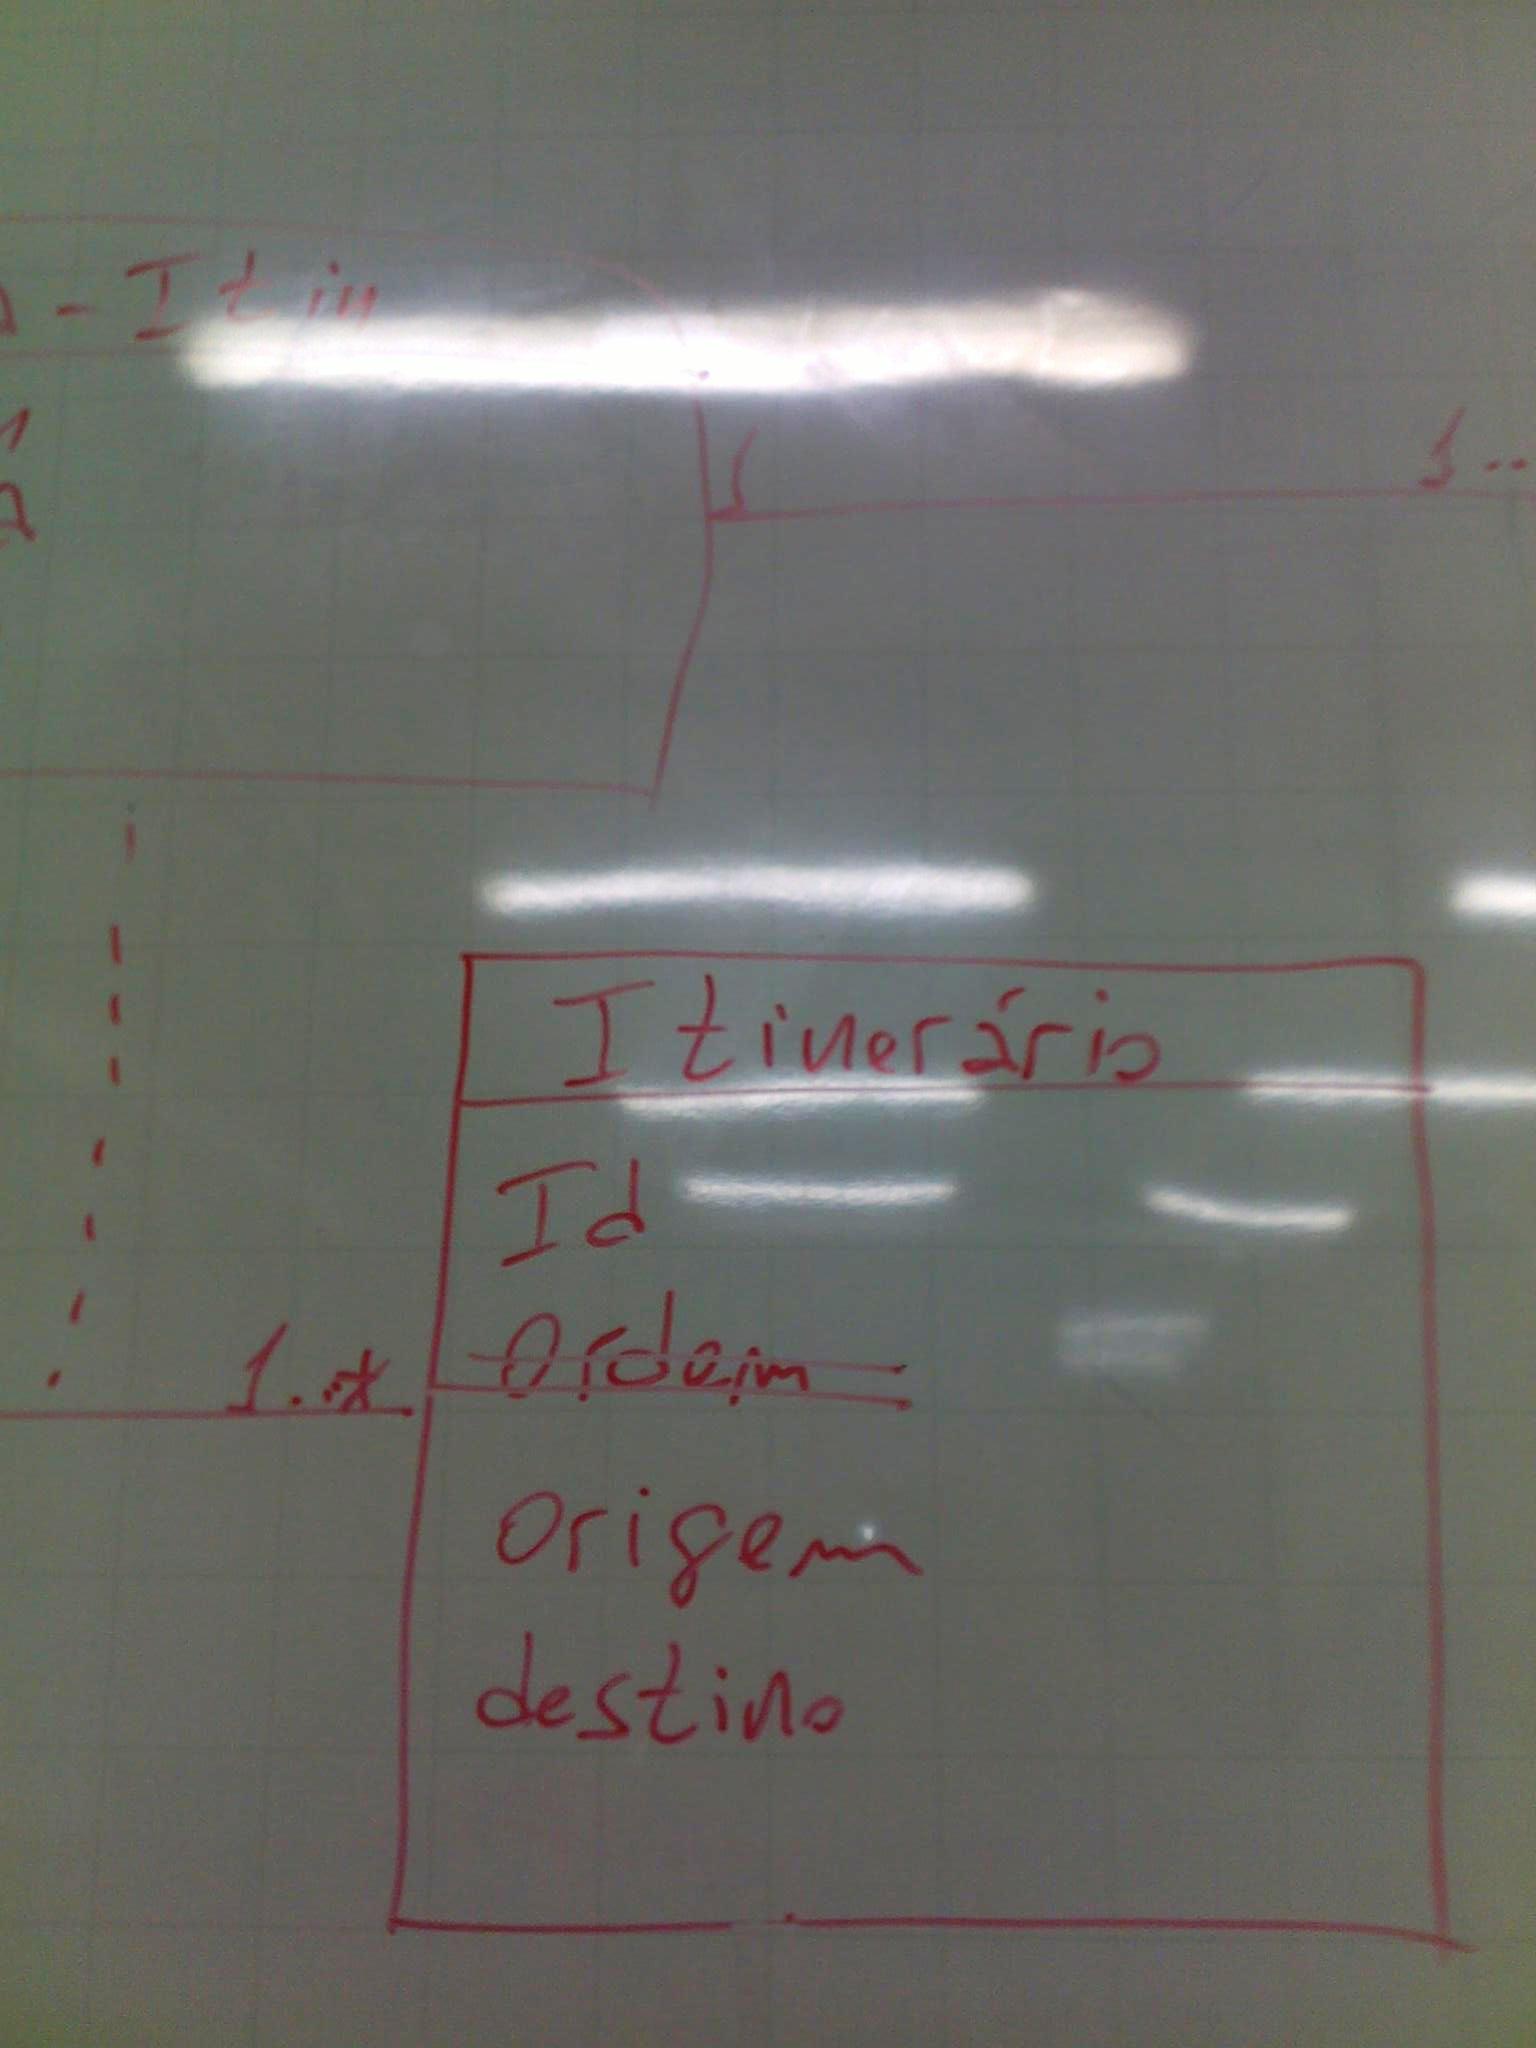 - Itin
1
1..
Itinerário
Id
Ordem
1..*
origem
destino